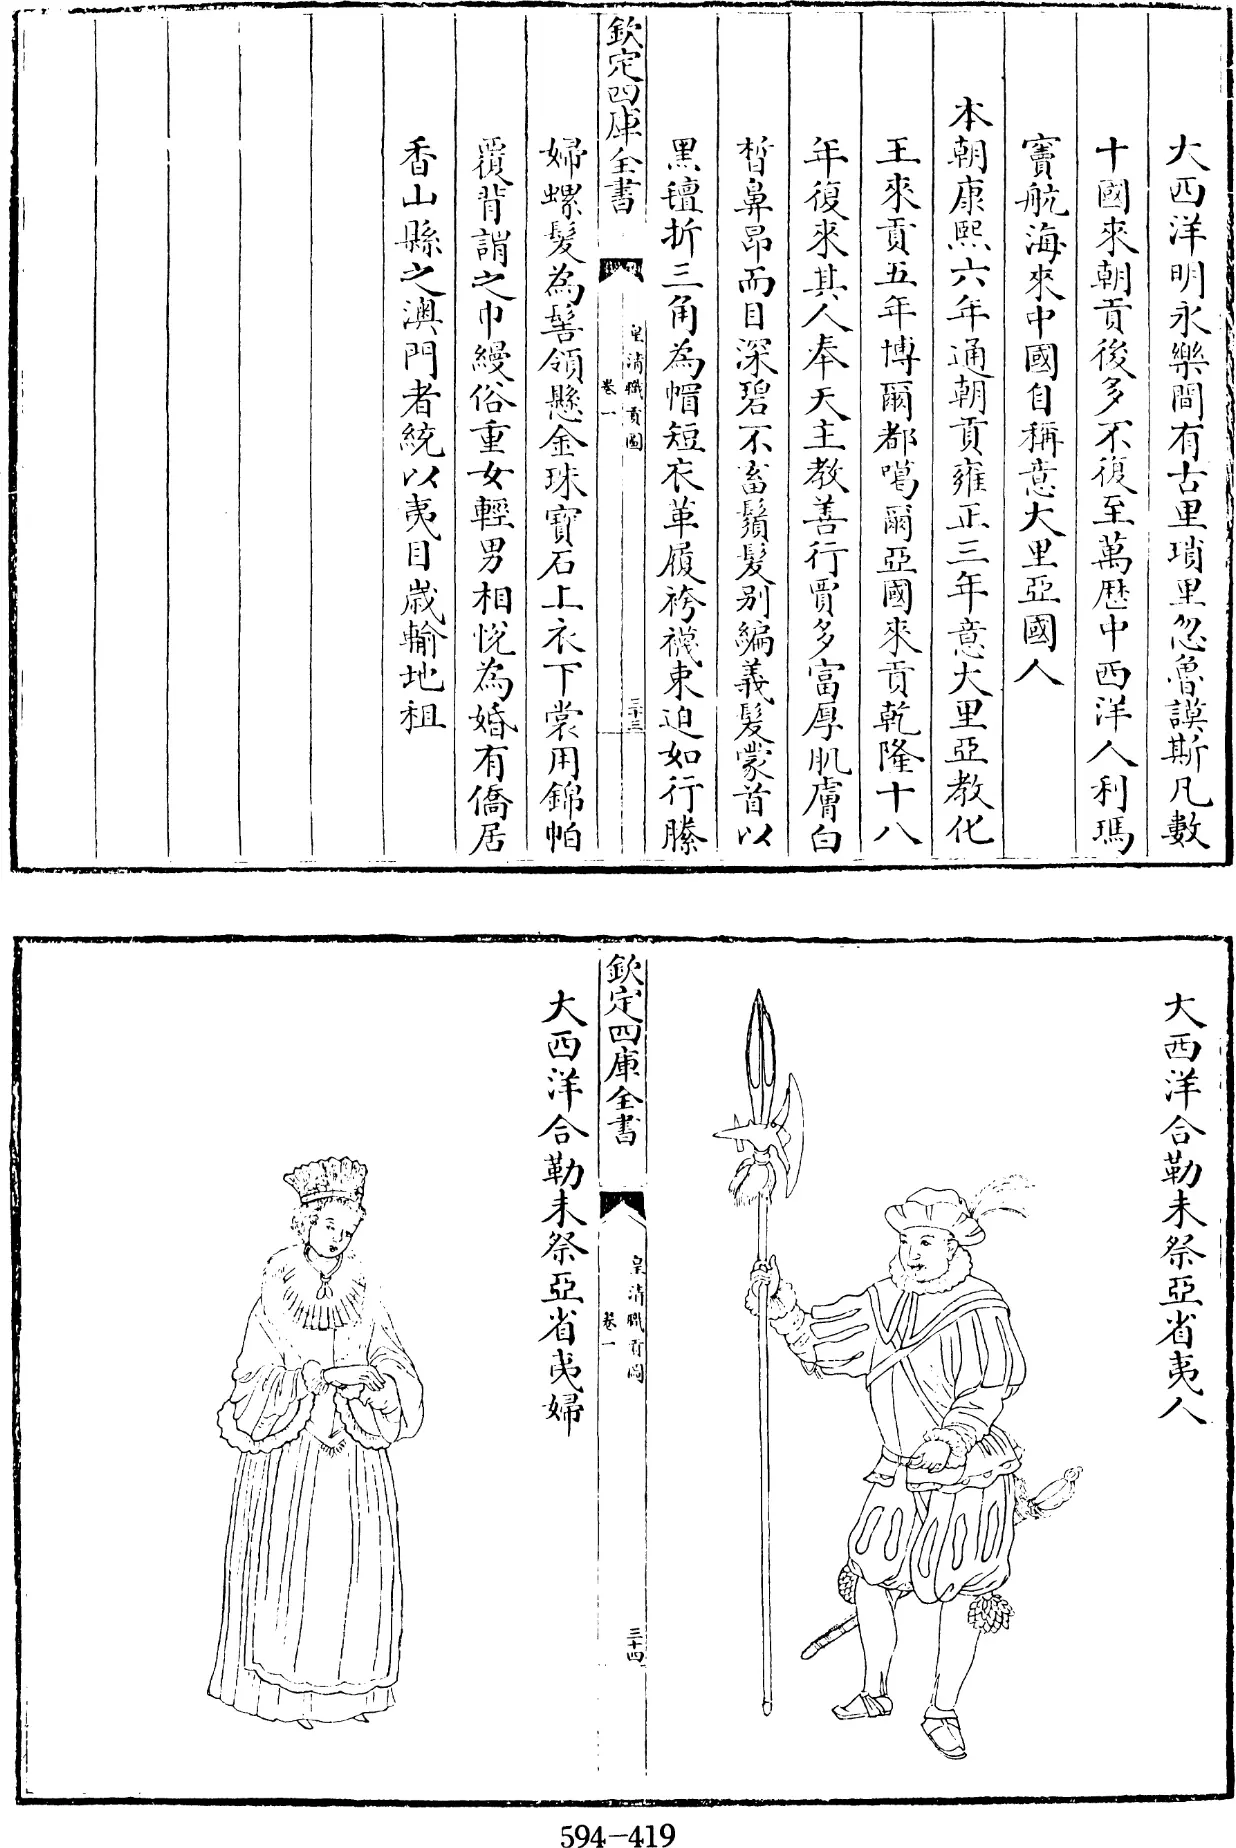 大西洋明永樂間有古里瑣里忽魯謨斯凡數
十國來朝貢後多不復至萬歷中西洋人利瑪
竇航海來中國自稱意大里亞國人
本朝康熙六年通朝貢雍正三年意大里亞教化
王來貢五年博爾都噶爾亞國來貢乾隆十八
年復來其人奉天主教善行賈多富厚肌膚白
晳鼻昂而目深碧不畜鬚髮别編義髮蒙首以
黑氊折三角為帽短衣革履袴襪束迫如行縢
欽定四庫全書
皇清職貢圖
卷一
三十三
婦螺髮為髻領懸金珠寶石上衣下裳用錦帕
覆背謂之巾縵俗重女輕男相悅為婚有僑居
香山縣之澳門者統以夷目歲輸地租
大西洋合勒未祭亞省夷人
欽定四庫全書
皇清職貢圖
卷一
三十四
大西洋合勒未祭亞省夷婦
594-419